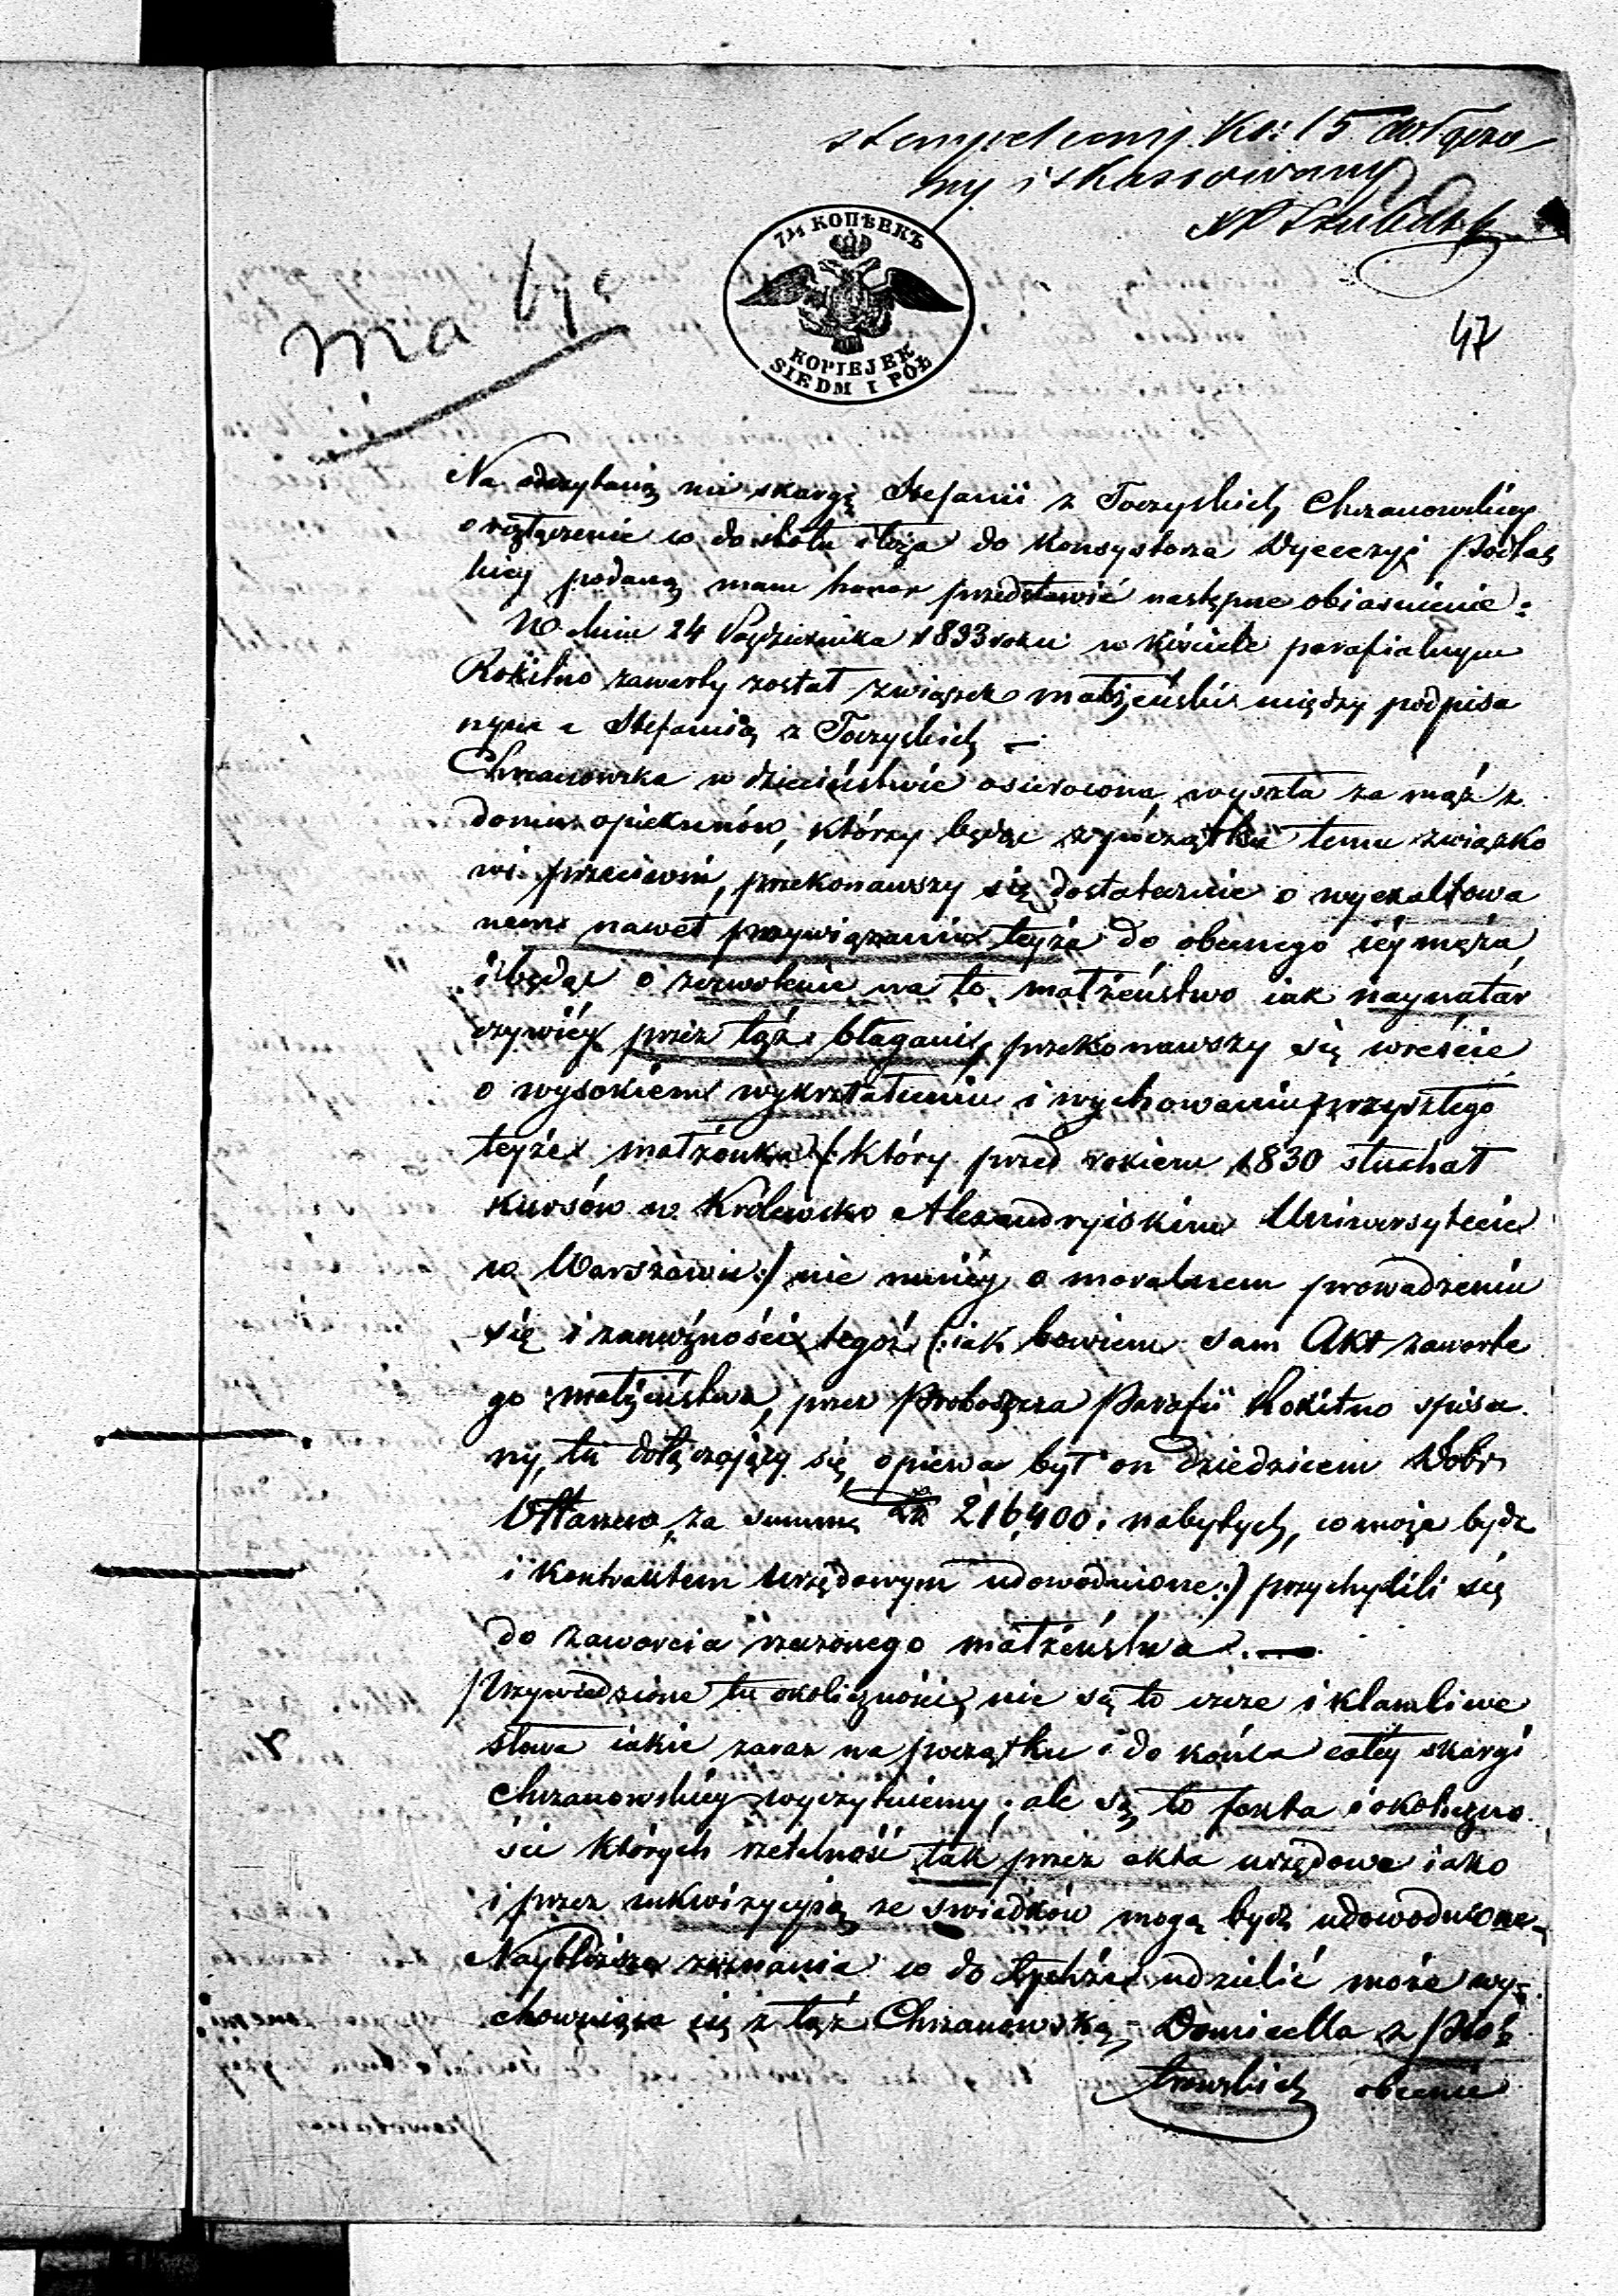 stempel ceny Ko: 15 dołączo
ny i skassowany
47
7½ КОПѢЕКЪ
KOPIEJEK
SIEDM I PÓŁ
ma być
Na odczytaną mi skargę Stefanii z Toczyskich Chrzanowskiey
o rozłączenie co do stołu i łoża do Konsystorza Dyecezyi Podlas
kiey podaną mam honor przedstawić następne obiaśnienie:
W dniu 24 Października 1833 roku w kościele parafialnym
Rokitno zawarty został związek małżeński między podpisa
nym a Stefanią z Toczyskich —
Chrzanowska w dzieciństwie osierocona, wyszła za mąż z
domu opiekunów, którzy będąc z początku temu związko
wi przeciwni, przekonawszy się dostatecznie o wyexaltowa
nem nawet przywiązaniu teyże do obecnego iéy męża,
i będąc o zezwolenie na to małżeństwo iak naynatar
czywiéy przez tąż błagani, przekonawszy się wreście
o wysokiem wykształceniu i wychowaniu przyszłego
teyże małżonka (: który przed rokiem 1830 słuchał
kursów w Królewsko Alexandryiskim Uniwersytecie
w Warszawie :) nie mniéy o moralnem prowadzeniu
się i zamożności tegoż (: iak bowiem sam Akt zawarte
go małżeństwa, przez Proboszcza Parafii Rokitno spisa
ny, tu dołączający się, opiewa był on dziedzicem Dobr
za summę Zł 216,400: nabytych, co może bydz
i kontraktem urzędowym udowodnione :) przychylili się
do zawarcia rzeczonego małżeństwa. —
Przywiedzione tu okoliczności, nie są to czcze i kłamliwe
słowa iakie zaraz na początku i do końca całey skargi
Chrzanowskiéy wyczytuiemy; ale są to fakta i okoliczno
ści których rzetelność tak przez akta urzędowe iako
i przez inkwizycyią ze świadków mogą bydź udowodnione.
Naybliższe zeznania co do tychże udzielić może wy-
chowuiąca się z tąż Chrzanowską, — Domicella z
obecnie